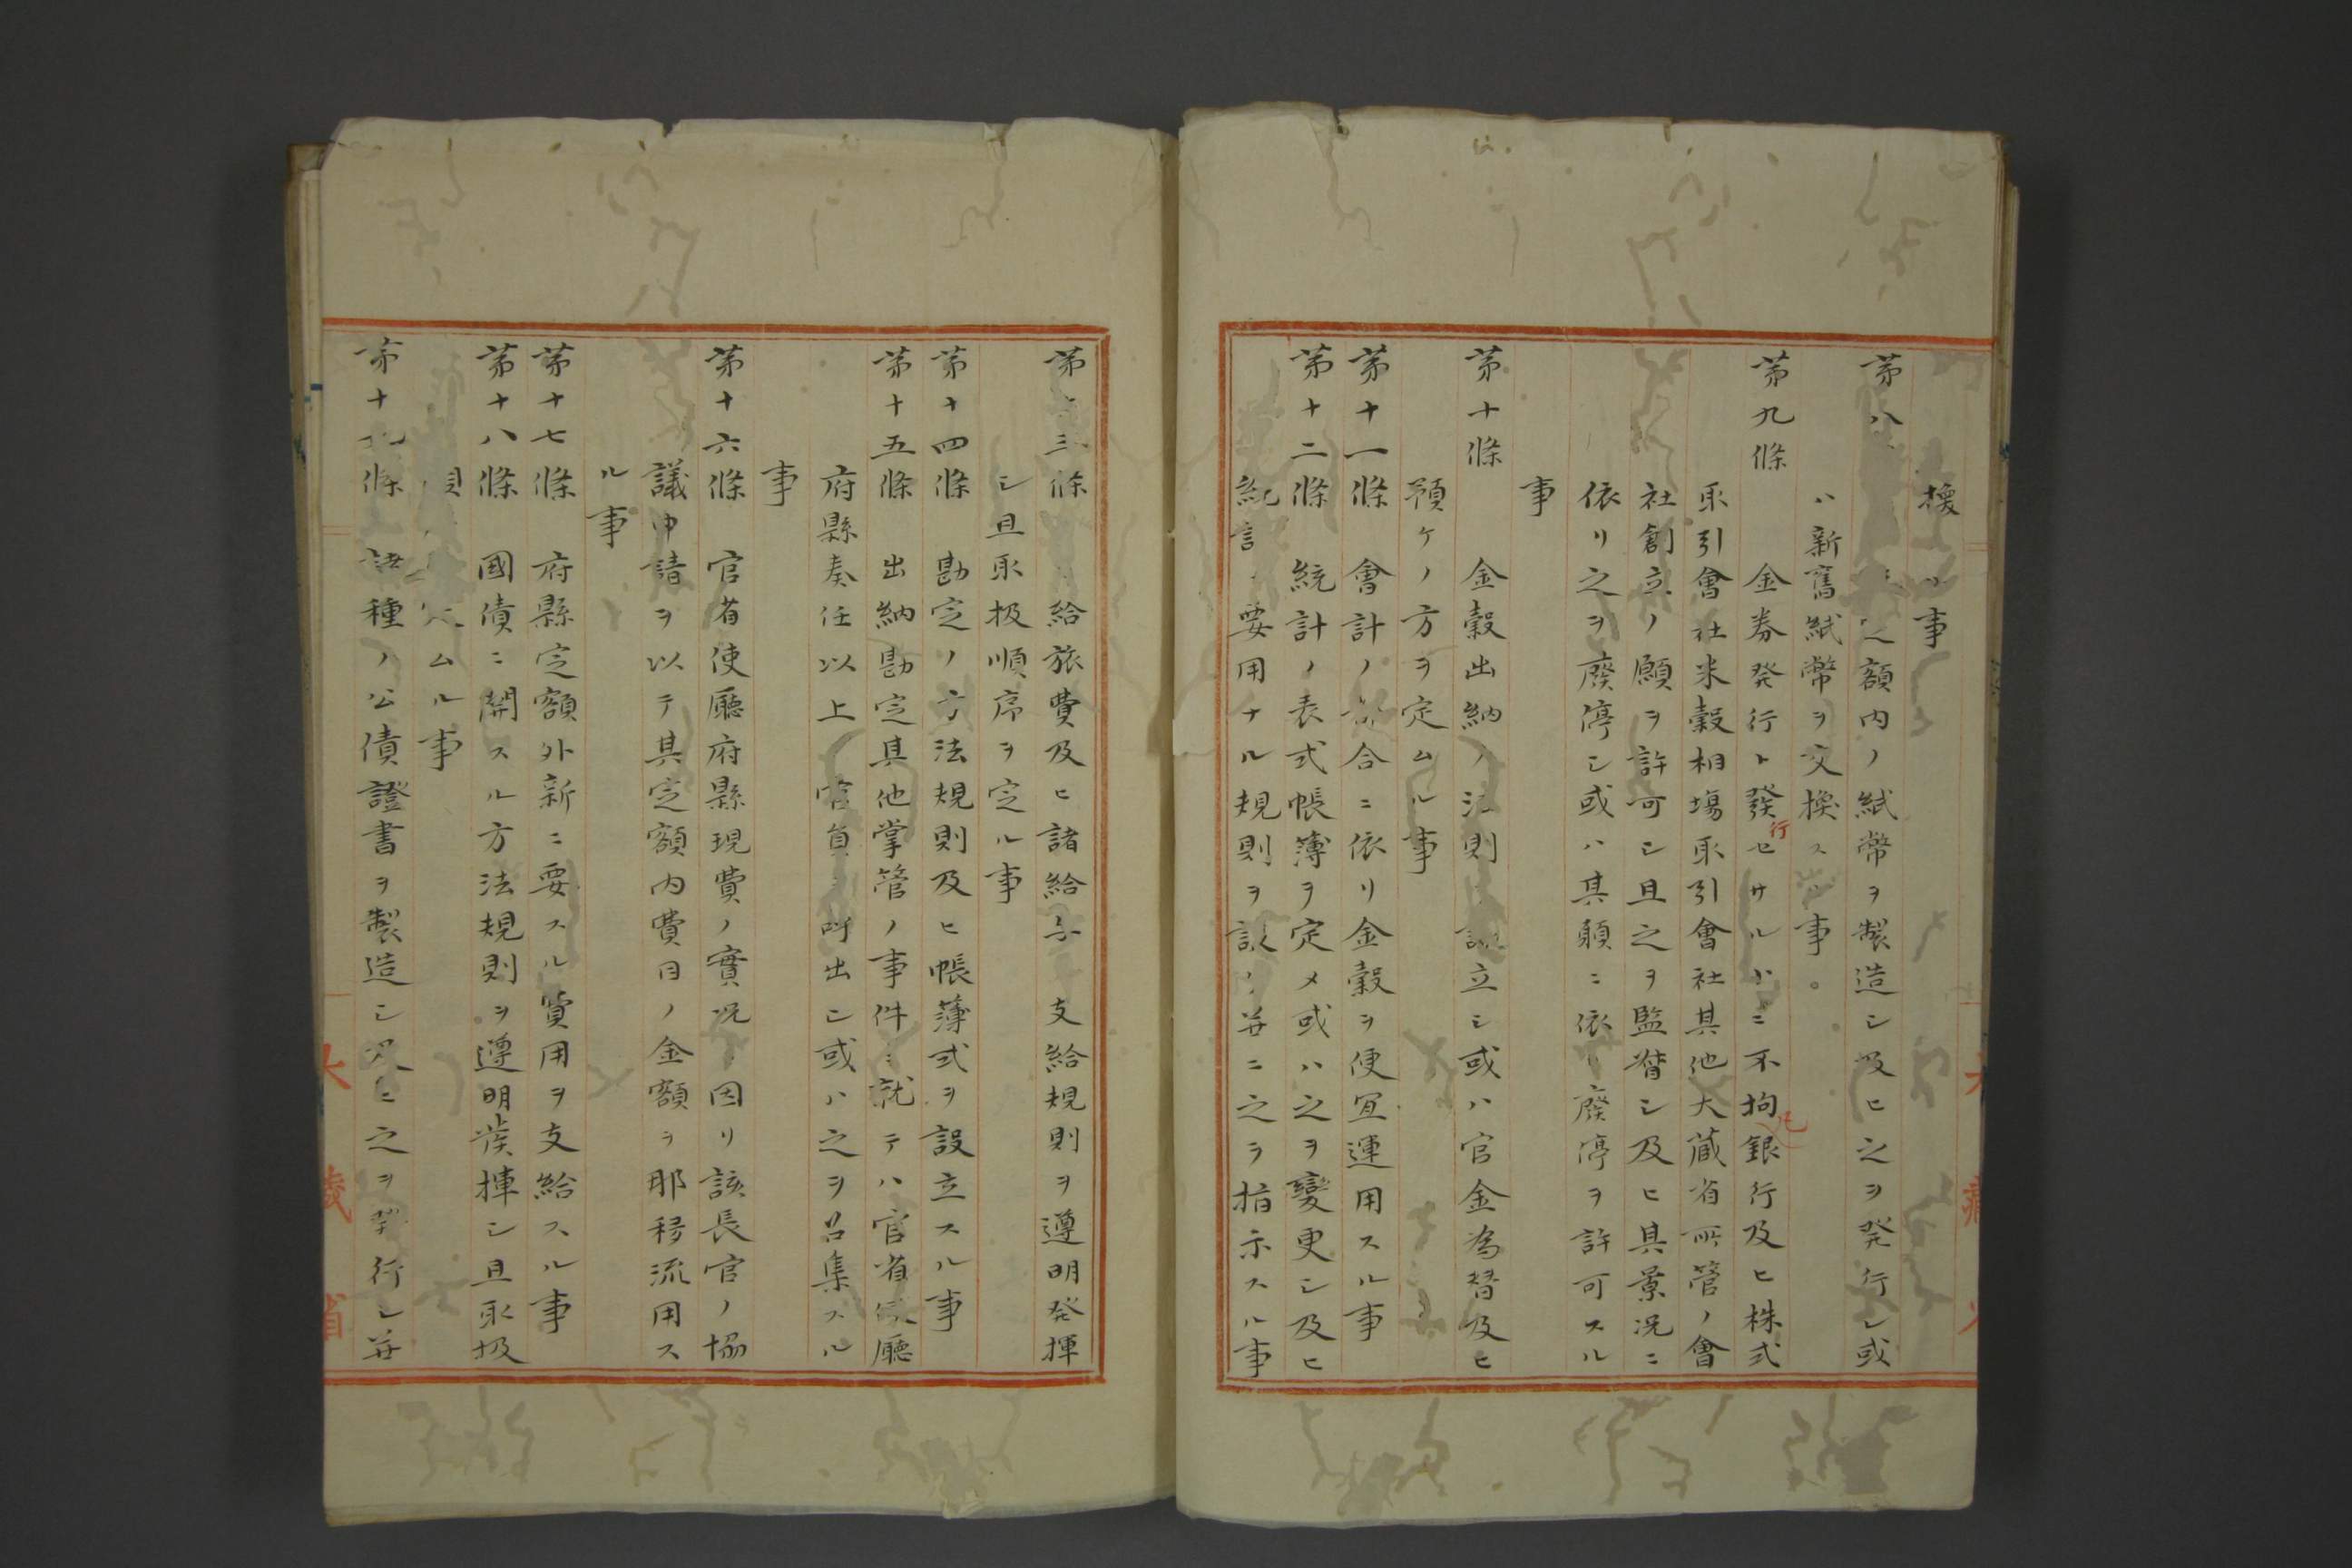 換　事
第八　額内ノ紙幣ヲ製造シ及ヒ之ヲ発行シ或
ハ新舊紙幣ヲ交換ス　事
第九條　金券発行ト發行セサルトニ不拘銀行及ヒ株式
取引會社米穀相場取引會社其他大蔵省所管ノ會
社創立ノ願ヲ許可シ且之ヲ監督シ及ヒ其景況ニ
依リ之ヲ廃停シ或ハ其願ニ依リ廃停ヲ許可スル
事
第十條　金穀出納ノ法則　設立シ或ハ官金為替及ヒ
預ケノ方ヲ定ムル事
第十一條　會計ノ都合ニ依リ金穀ヲ便宜運用スル事
第十二條　統計ノ表式帳簿ヲ定メ或ハ之ヲ變更シ及ヒ
要用ナル規則ヲ設　並ニ之ヲ指示スル事
第　三條　給旅費及ヒ諸給与　支給規則ヲ遵明発揮
シ且取扱順序ヲ定ル事
第十四條　勘定ノ方法規則及ヒ帳簿式ヲ設立スル事
第十五條　出納勘定其他掌管ノ事件ニ就テハ官省　廳
府縣奏任以上ノ官員　呼出シ或ハ之ヲ召集スル
事
第十六條　官省使廳府縣現費ノ實况　因リ該長官ノ協
議申請ヲ以テ其定額内費目ノ金額ヲ那移流用ス
ル事
第十七條　府縣定額外新ニ要スル費用ヲ支給スル事
第十八條　國債ニ関スル方法規則ヲ遵明発揮シ且取扱
ムル事
第十九條　諸種ノ公債證書ヲ製造シ及ヒ之ヲ発行シ並
大蔵省